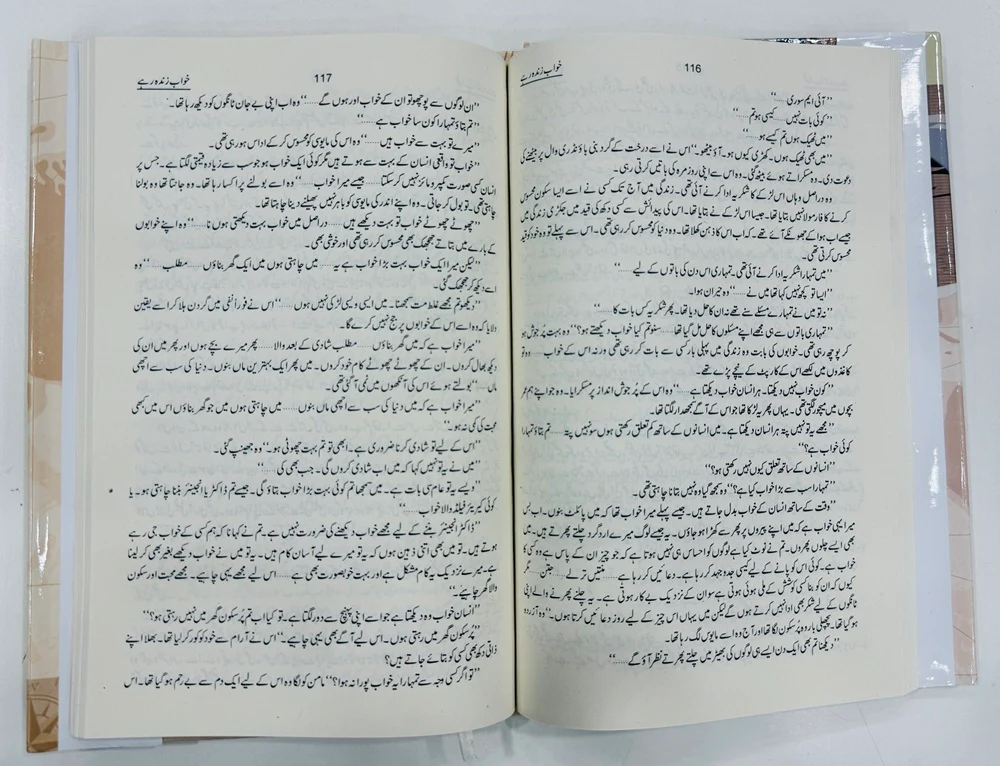 116
خواب زندہ رہے
”آئی ایم سوری......“
”کوئی بات نہیں...... کیسی ہو تم......“
”میں ٹھیک ہوں تم کیسے ہو......“
”میں بھی ٹھیک ہوں۔ کھڑی کیوں ہو۔ آؤ بیٹھو۔“ اس نے اسے درخت کے گرد بنی باؤنڈری وال پر بیٹھنے کی
دعوت دی۔ وہ مسکراتے ہوئے بیٹھ گئی۔ وہ اس سے اپنی روز مرہ کی باتیں کرتی رہی۔
وہ دراصل وہاں اس لڑکے کا شکریہ ادا کرنے آئی تھی۔ زندگی میں آج تک کسی نے اسے ایسا سکون محسوس
کرنے کا فارمولا نہیں بتایا تھا۔ جیسا اس لڑکے نے بتایا تھا۔ اس کی پیدائش سے کسی دکھ کی قید میں جکڑی زندگی میں
جیسے اب ہوا کے جھونکے آئے تھے۔ کہ اب اس کا ذہن کھلا تھا۔ وہ دنیا کو محسوس کر رہی تھی۔ اس سے پہلے تو وہ خود کو قید
محسوس کرتی تھی۔
”میں تمہارا شکریہ ادا کرنے آئی تھی۔ تمہاری اس دن کی باتوں کے لیے......“
”ایسا تو کچھ نہیں کہا تھا میں نے......“ وہ حیران ہوا۔
”نہ تو میں نے تمہارے مسئلے سنے تھے نہ ان کا حل دیا تھا۔ پھر شکریہ کس بات کا......“
”تمہاری باتوں سے ہی مجھے اپنے مسئلوں کا حل مل گیا تھا...... سنو تم کیا خواب دیکھتے ہو؟“ وہ بہت پُر جوش ہو
کر پوچھ رہی تھی۔ خوابوں کی بابت وہ زندگی میں پہلی بار کسی سے بات کر رہی تھی ورنہ اس کے خواب...... وہ تو
کاغذوں میں لکھے اس کے کارپٹ کے نیچے پڑے تھے۔
”کون خواب نہیں دیکھتا۔ ہر انسان خواب دیکھتا ہے......“ وہ اس کے پُر جوش انداز پر مسکرایا۔ وہ جو اپنے ہم عمر
بچوں میں میچور لگتی تھی۔ یہاں پھر یہ لڑکا تھا جو اس کے آگے سمجھدار لگتا تھا۔
”مجھے یہ تو نہیں پتہ ہر انسان دیکھتا ہے۔ میں انسانوں کے ساتھ کم تعلق رکھتی ہوں سو نہیں پتہ...... تم بتاؤ تمہارا
کوئی خواب ہے؟“
”انسانوں کے ساتھ تعلق کیوں نہیں رکھتی ہو؟“
”تمہارا سب سے بڑا خواب کیا ہے؟“ وہ سمجھ گیا وہ نہیں بتانا چاہتی تھی۔
”وقت کے ساتھ انسان کے خواب بدل جاتے ہیں۔ جیسے پہلے میرا خواب تھا کہ میں پائلٹ بنوں۔ اب بس
میرا یہی خواب ہے کہ میں اپنے پیروں پر پھر سے کھڑا ہو جاؤں۔ یہ جیسے لوگ میرے ارد گرد چلتے پھرتے ہیں۔ میں
بھی ایسے چلوں پھروں۔ تم نے نوٹ کیا ہے لوگوں کو احساس ہی نہیں ہوتا ہے کہ جو چیز ان کے پاس ہے وہ کسی کا
خواب ہے۔ کوئی اس کو پانے کے لیے کیسی جدوجہد کر رہا ہے۔ دعائیں کر رہا ہے...... منتیں ترلے...... جتن...... مگر
کیوں کہ ان کو بنا کسی کوشش کے ملی ہوئی ہوتی ہے سو ان کے نزدیک بے کار ہوتی ہے۔ یہ چلنے پھرنے والے اپنی
ٹانگوں کے لیے شکر بھی ادا نہیں کرتے ہوں گے لیکن میں یہاں اس چیز کے لیے روز دعائیں کرتا ہوں۔“ وہ آزردہ
ہو گیا تھا۔ پچھلی بار وہ پُرسکون لگا تھا اور آج وہ اسے مایوس لگ رہا تھا۔
”دیکھنا تم بھی ایک دن ایسے ہی لوگوں کی بھیڑ میں چلتے پھرتے نظر آؤ گے......“
117
خواب زندہ رہے
”ان لوگوں سے پوچھو تو ان کے خواب اور ہوں گے......“ وہ اب اپنی بے جان ٹانگوں کو دیکھ رہا تھا۔
”تم بتاؤ تمہارا کون سا خواب ہے......“
”میرے تو بہت سے خواب ہیں......“ وہ اس کی مایوسی کو محسوس کر کے اداس ہو رہی تھی۔
”خواب تو واقعی انسان کے بہت سے ہوتے ہیں مگر کوئی ایک خواب ہو جو سب سے زیادہ قیمتی لگتا ہے۔ جس پر
انسان کسی صورت کمپرومائز نہیں کر سکتا...... جیسے میرا خواب......“ وہ اسے بولنے پر اکسا رہا تھا۔ وہ جانتا تھا وہ بولنا
چاہتی تھی۔ تو بول کر جاتی۔ وہ اپنے اندر کی مایوسی کو باہر نہیں پھیلنے دینا چاہتا تھا۔
”چھوٹے چھوٹے خواب تو بہت دیکھے ہیں...... دراصل میں خواب بہت دیکھتی ہوں نا......“ وہ اپنے خوابوں
کے بارے میں بتاتے جھجک بھی محسوس کر رہی تھی اور خوشی بھی۔
”لیکن میرا ایک خواب بہت بڑا خواب ہے یہ...... میں چاہتی ہوں میں ایک گھر بناؤں...... مطلب......“ وہ
اسے دیکھ کر جھجک گئی۔
”دیکھو تم مجھے غلط مت سمجھنا۔ میں ایسی ویسی لڑکی نہیں ہوں......“ اس نے فوراً نفی میں گردن ہلا کر اسے یقین
دلایا کہ وہ اسے اس کے خوابوں پر جج نہیں کرے گا۔
”میرا خواب ہے کہ میں گھر بناؤں...... مطلب شادی کے بعد والا...... پھر میرے بچے ہوں اور پھر میں ان کی
دیکھ بھال کروں۔ ان کے چھوٹے چھوٹے کام خود کروں۔ میں پھر ایک بہترین ماں بنوں۔ دنیا کی سب سے اچھی
ماں......“ بولتے ہوئے اس کی آنکھوں میں نمی آ گئی تھی۔
”میرا خواب ہے کہ میں دنیا کی سب سے اچھی ماں بنوں...... میں چاہتی ہوں میں جو گھر بناؤں اس میں کبھی
محبت کی کمی نہ ہو۔“
”اس کے لیے تو شادی کرنا ضروری ہے۔ ابھی تو تم بہت چھوٹی ہو۔“ وہ جھینپ گئی۔
”میں نے یہ تو نہیں کہا کہ میں اب شادی کروں گی۔ جب بھی کی......“
”ویسے یہ تو عام سی بات ہے۔ میں سمجھا تم کوئی بہت بڑا خواب بتاؤ گی۔ جیسے تم ڈاکٹر یا انجینئر بننا چاہتی ہو۔ یا
کوئی کیریئر فیلڈ والا خواب......“
”ڈاکٹر انجینئر بننے کے لیے مجھے خواب دیکھنے کی ضرورت نہیں ہے۔ تم نے کہا نا کہ ہم کسی کے خواب جی رہے
ہوتے ہیں۔ تو میں بھی اتنی ذہین ہوں کہ یہ تو میرے لیے آسان کام ہیں۔ یہ تو میں نے خواب دیکھے بغیر بھی کر لینا
ہے۔ میرے نزدیک یہ کام مشکل ہے اور بہت خوبصورت بھی ہے...... اس لیے مجھے یہی چاہیے۔ مجھے محبت اور سکون
والا گھر چاہیے۔“
”انسان خواب وہ دیکھتا ہے جو اسے اپنی پہنچ سے دور لگتا ہے۔ تو کیا اب تم پُرسکون گھر میں نہیں رہتی ہو؟“
”پُرسکون گھر میں رہتی ہوں۔ اس لیے آگے بھی یہی چاہیے۔“ اس نے آرام سے خود کو کور کر لیا تھا۔ بھلا اپنے
ذاتی دکھ بھی کسی کو بتائے جاتے ہیں؟
”تو اگر کسی وجہ سے تمہارا یہ خواب پورا نہ ہوا؟“ مامن کو لگا وہ اس کے لیے ایک دم سے بے رحم ہو گیا تھا۔ اس